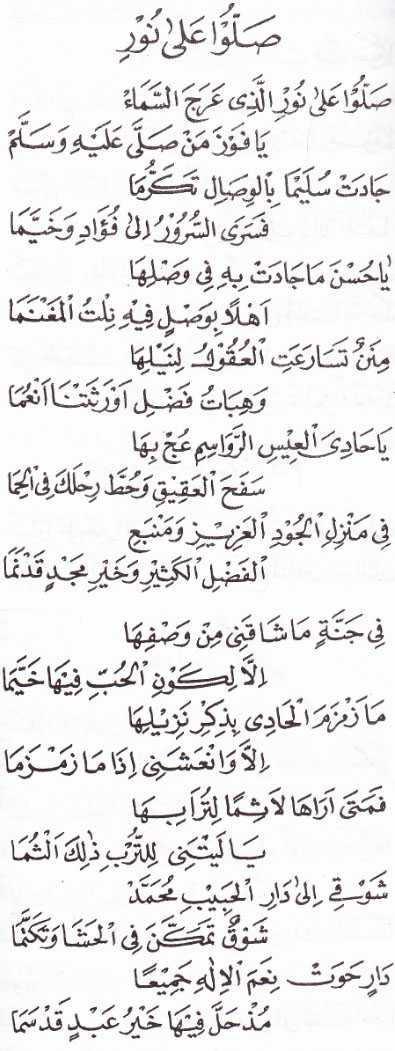 صَلُّوْا عَلىٰ نُوْرِ
صَلُّوْا عَلىٰ نُوْرِ الَّذِى عَرَجَ السَّمَاءْ
يَا فَوْزَ مَنْ صَلَّى عَلَيْهِ وَسَلَّمْ
جَادَتْ سُلَيْمَا بِالْوِصَالِ تَكَرُّمَا
فَسَرَى السُّرُوْرُ اِلىٰ فُؤَادِ وَخَيَّمَا
يَاحُسْنَ مَاجَادَتْ بِهِ فِى وَصْلِهَا
اَهْلًا بِوَصْلٍ فِيْهِ نِلْتُ الْمَغْنَمَا
مِنَنٌ تَسَارَعَتِ الْعُقُوْلُ لِنَيْلِهَا
وَهِبَاتُ فَضْلٍ اَوْرَثَتْنَا اَنْعُمَا
يَاحَادِىَ الْعِيْسِ الرَّوَاسِمِ عُجْ بِهَا
سَفْحَ الْعَقِيْقِ وَحُطَّ رِحْلَكَ فِى الْحِمَا
فِى مَنْزِلِ الْجُوْدِ الْعَزِيْزِ وَمَنْبَعِ
الْفَضْلِ الْكَثِيْرِ وَخَيْرِ مَجْدٍ قَدْنَمَا
فِى جَنَّةٍ مَاشَاقَنِى مِنْ وَصْفِهَا
اِلَّا لِكَوْنِ الْحُبِّ فِيْهَا خَيَّمَا
مَازَمْزَمَ الْحَادِى بِذِكْرِ نَزِيْلِهَا
اِلَّا وَانْعَشَنِى اِذَا مَا زَمْزَمَا
فَمَتَى اَرَاهَا لَاثِمًا لِتُرَابِهَا
يَالَيْتَنِى لِلتُّرْبِ ذٰلِكَ اَلْثُمَا
شَوْقِى اِلىٰ دَارِ الْحَبِيْبِ مُحَمَّدْ
شَوْقٌ تَمَكَّنَ فِى الْحَشَا وَتَكَتَّمَا
دَارٍ حَوَتْ نِعَمَ الْاِلٰهِ جَمِيْعًا
مُذْحَلَّ فِيْهَا خَيْرُ عَبْدٍ قَدْسَمَا